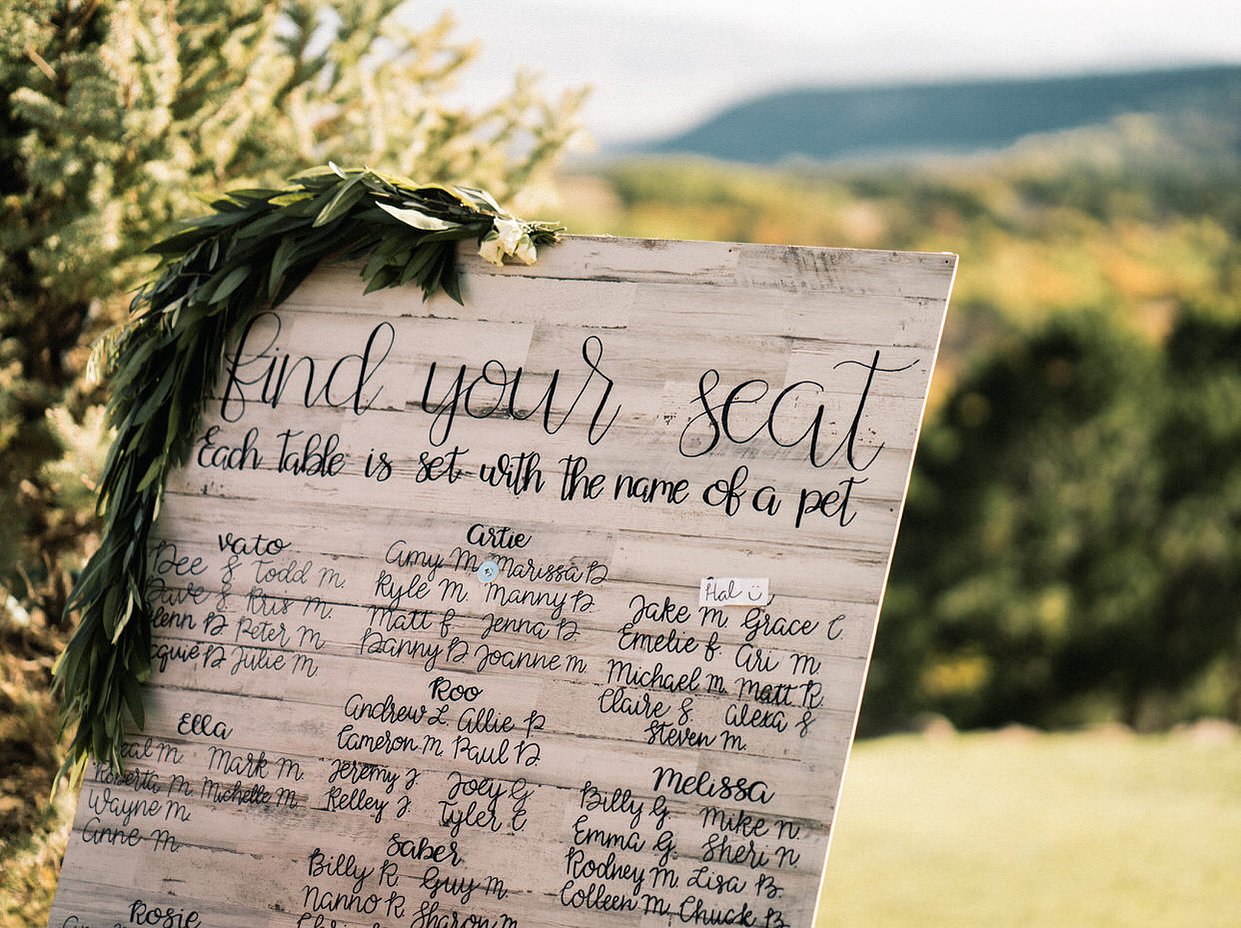 find your seat
Each Table is set with the name of a pet
Vato
Dee & Todd M.
Dave & Kris M.
Peter M.
Julie M.
Artie
Amy M. Marissa B
Kyle M. Manny B.
Matt F Jenna B
Danny B Joanne M.
Hal
Jake M. Grace C.
Emelie F Ari M
Michael M. Matt R.
Claire S. Alexa S
Steven M.
Roo
Andrew L. Allie P
Cameron M. Paul B.
Jeremy J Joey G.
Kelley J. Tyler C
Ella
Mark M.
Roberta M. Michelle M.
Wayne M.
Anne M.
Melissa
Billy G. Mike N.
Emma G. Sheri N
Rodney M. Lisa B.
Colleen M. Chuck B
Saber
Billy R. Guy M.
Nanno R Sharon M
Rosie